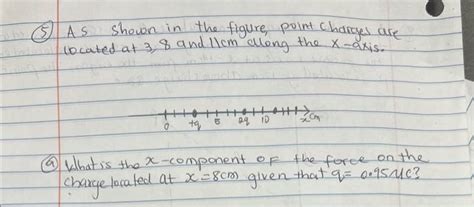 ⑤ As shown in the figure, point charges are
located at 3, 8 and 11cm along the x-axis.
0 +q 5 2q 10 x cm
ⓐ What is the x-component of the force on the
charge located at x=8cm given that q= 0.95 μC?